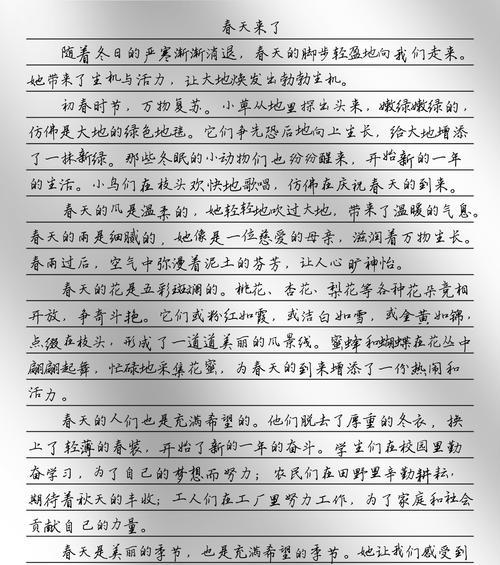 春天来了
随着冬日的严寒渐渐消退，春天的脚步轻盈地向我们走来。
她带来了生机与活力，让大地焕发出勃勃生机。
初春时节，万物复苏。小草从地里探出头来，嫩绿嫩绿的，
仿佛是大地的绿色地毯。它们争先恐后地向上生长，给大地增添
了一抹新绿。那些冬眠的小动物们也纷纷醒来，开始新的一年
的生活。小鸟们在枝头欢快地歌唱，仿佛在庆祝春天的到来。
春天的风是温柔的，她轻轻地吹过大地，带来了温暖的气息。
春天的雨是细腻的，她像是一位慈爱的母亲，滋润着万物生长。
春雨过后，空气中弥漫着泥土的芬芳，让人心旷神怡。
春天的花是五彩斑斓的。桃花、杏花、梨花等各种花朵竞相
开放，争奇斗艳。它们或粉红如霞，或洁白如雪，或金黄如锦，
点缀在枝头，形成了一道道美丽的风景线。蜜蜂和蝴蝶在花丛中
翩翩起舞，忙碌地采集花蜜，为春天的到来增添了一份热闹和
活力。
春天的人们也是充满希望的。他们脱去了厚重的冬衣，换
上了轻薄的春装，开始了新的一年的奋斗。学生们在校园里勤
奋学习，为了自己的梦想而努力；农民们在田野里辛勤耕耘，
期待着秋天的丰收；工人们在工厂里努力工作，为了家庭和社会
贡献自己的力量。
春天是美丽的季节，也是充满希望的季节。她让我们感受到